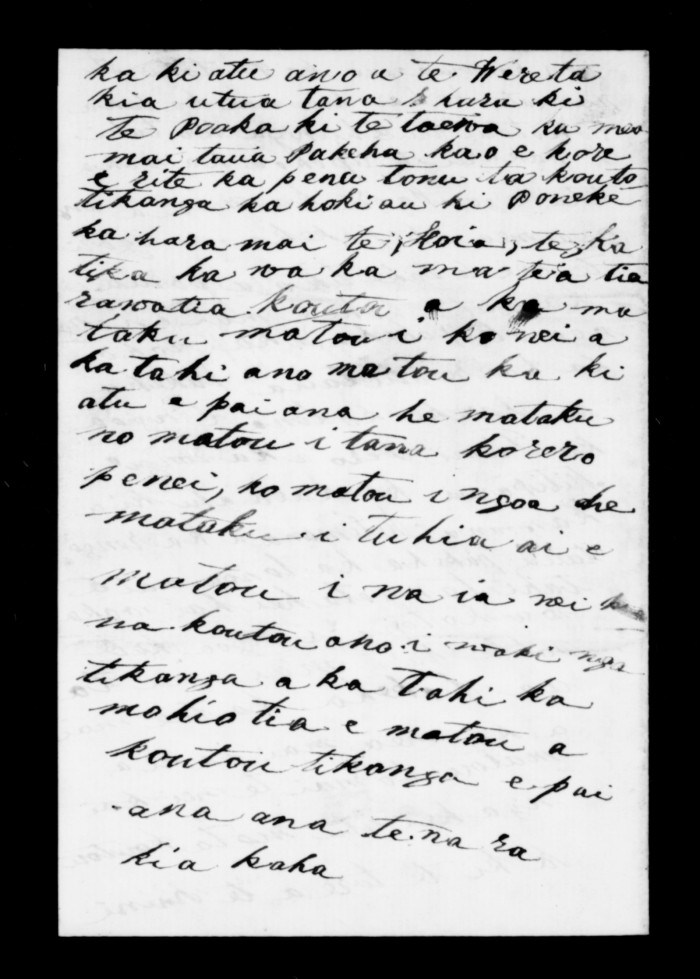 ka ki atu ano a te Wereta
kia utua tana huru ki
te Poaka ki te taewa ka mea
mai taua Pakeha kao e kore
e rite ka penu tonu ta kouto
tikanga ka hoki au ki Poneke
ka hara mai te, koia, te, ka
tika ka wa ka ma te a tia
rawatia koutou a ka ma
taku matou i ko nei a
ka tahi ano matou ka ki
atu e pai ana he mataku
no matou i tana korero
penei, ko matou i ngoa he
mataku i tuhia ai e
matou i na ia nei
na koutou ano i waki nga
tikanga a ka Tahi ka
mohio tia e matou a
koutou tikanga e pai
ana ana te na ra
kia kaha